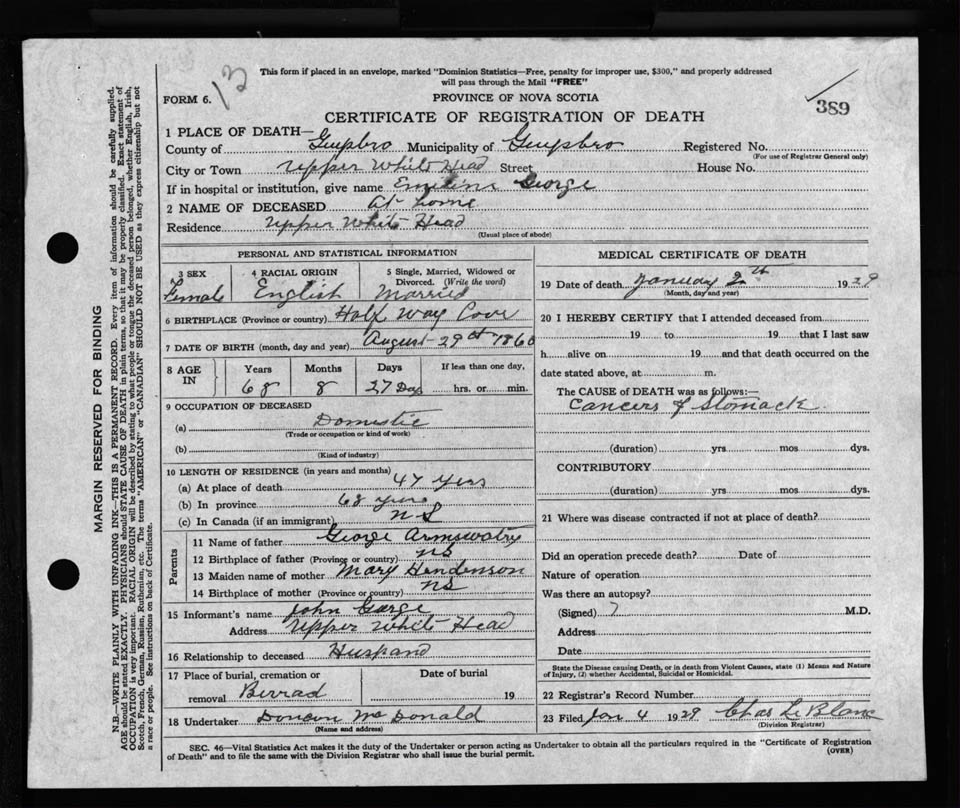 This form if placed in an envelope, marked "Dominion Statistics—Free, penalty for improper use, $300," and properly addressed
will pass through the Mail "FREE"
13
FORM 6.
PROVINCE OF NOVA SCOTIA
389
CERTIFICATE OF REGISTRATION OF DEATH
1 PLACE OF DEATH—
County of Guysbro Municipality of Guysbro Registered No.
(For use of Registrar General only)
City or Town Upper White Head Street House No.
If in hospital or institution, give name Emiline George
2 NAME OF DECEASED at home
Residence Upper White Head
(Usual place of abode)
PERSONAL AND STATISTICAL INFORMATION
3 SEX 4 RACIAL ORIGIN 5 Single, Married, Widowed or
Divorced. (Write the word)
Female English Married
6 BIRTHPLACE (Province or country) Half Way Cove
7 DATE OF BIRTH (month, day and year) August 29th 1860
8 AGE IN Years Months Days If less than one day,
68 8 27 Days hrs. or min.
9 OCCUPATION OF DECEASED
(a) Domestic
(Trade or occupation or kind of work)
(b)
(Kind of industry)
10 LENGTH OF RESIDENCE (in years and months)
(a) At place of death 47 years
(b) In province 68 years
(c) In Canada (if an immigrant) N S
Parents
11 Name of father George
12 Birthplace of father (Province or country) NS
13 Maiden name of mother Mary Hendenson
14 Birthplace of mother (Province or country) NS
15 Informant's name John George
Address Upper White Head
16 Relationship to deceased Husband
17 Place of burial, cremation or Date of burial
removal 19
18 Undertaker McDonald
(Name and address)
MEDICAL CERTIFICATE OF DEATH
19 Date of death January 2th 1929
(Month, day and year)
20 I HEREBY CERTIFY that I attended deceased from
19 to 19 that I last saw
h alive on 19 and that death occurred on the
date stated above, at m.
The CAUSE of DEATH was as follows:—
Cancers of Stomack
(duration) yrs mos dys.
CONTRIBUTORY
(duration) yrs mos dys.
21 Where was disease contracted if not at place of death?
Did an operation precede death? Date of
Nature of operation
Was there an autopsy?
(Signed) M.D.
Address
Date
State the Disease causing Death, or in death from Violent Causes, state (1) Means and Nature
of Injury, (2) whether Accidental, Suicidal or Homicidal.
22 Registrar's Record Number
23 Filed Jan 4 1929 Chas LeBlanc
(Division Registrar)
SEC. 46—Vital Statistics Act makes it the duty of the Undertaker or person acting as Undertaker to obtain all the particulars required in the "Certificate of Registration
of Death" and to file the same with the Division Registrar who shall issue the burial permit.
(OVER)
MARGIN RESERVED FOR BINDING
N.B.—WRITE PLAINLY WITH UNFADING INK—THIS IS A PERMANENT RECORD. Every item of information should be carefully supplied.
AGE should be stated EXACTLY. PHYSICIANS should STATE CAUSE OF DEATH in plain terms, so that it may be properly classified. Exact statement of
OCCUPATION is very important. RACIAL ORIGIN will be described by stating to what people or tongue the deceased person belonged, whether English, Irish,
Scotch, French, German, Russian, Ruthenian, etc. The terms "AMERICAN" or "CANADIAN" SHOULD NOT BE USED as they express citizenship but not
a race or people. See instructions on back of Certificate.